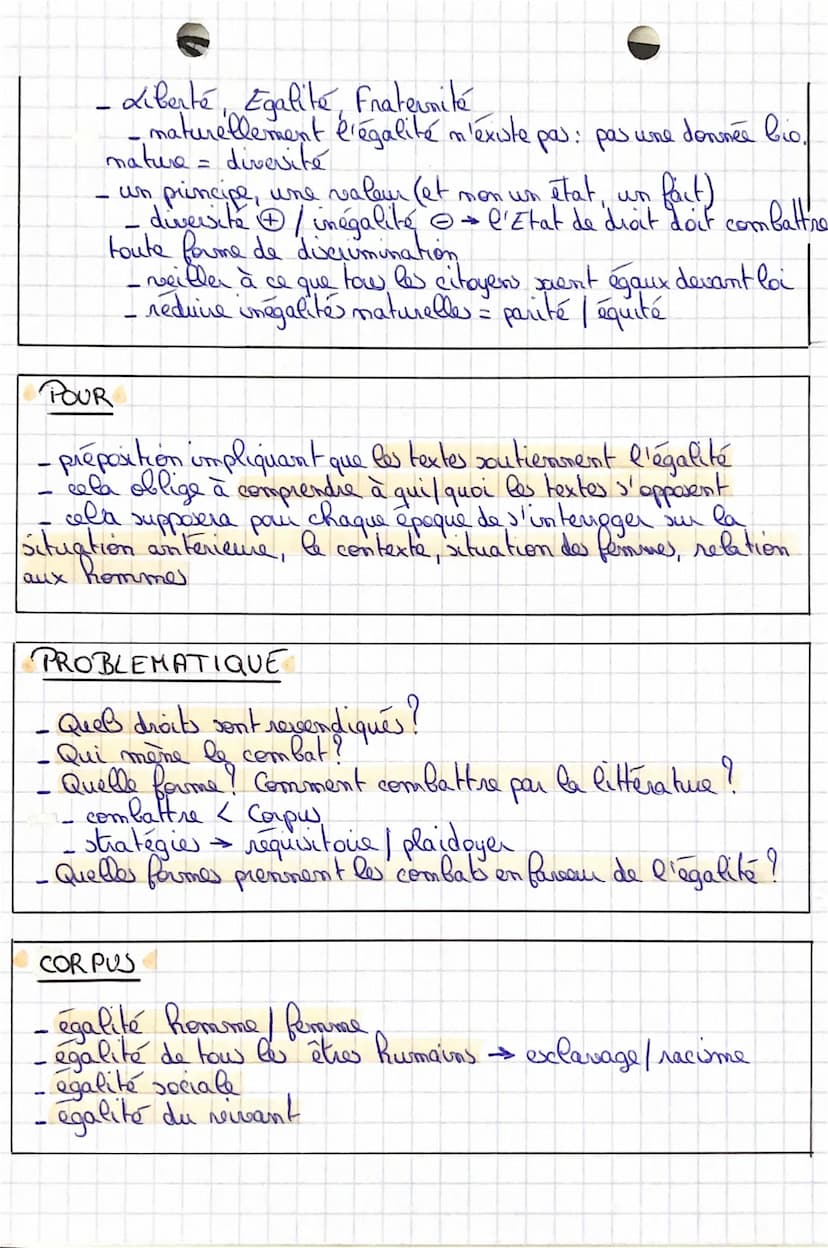 - Liberté, Egalité, Fraternité
- naturellement l'égalité n'existe pas : pas une donnée bio,
nature = diversité
- un principe, une valeur (et non un état, un fait)
- diversité ⊕ / inégalité ⊖ → l'Etat de droit doit combattre
toute forme de discrimination
- veiller à ce que tous les citoyens soient égaux devant loi
- réduire inégalités naturelles = parité / équité
POUR
- préposition impliquant que les textes soutiennent l'égalité
- cela oblige à comprendre à qui/quoi les textes s'opposent
- cela supposera pour chaque époque de s'interroger sur la
situation antérieure, le contexte, situation des femmes, relation
aux hommes
PROBLEMATIQUE
- Quels droits sont revendiqués ?
- Qui mène le combat ?
- Quelle forme ? Comment combattre par la littérature ?
- combattre < Corpus
- stratégies → réquisitoire / plaidoyer
- Quelles formes prennent les combats en faveur de l'égalité ?
CORPUS
- égalité homme / femme
- égalité de tous les êtres humains → esclavage / racisme
- égalité sociale
- égalité du vivant